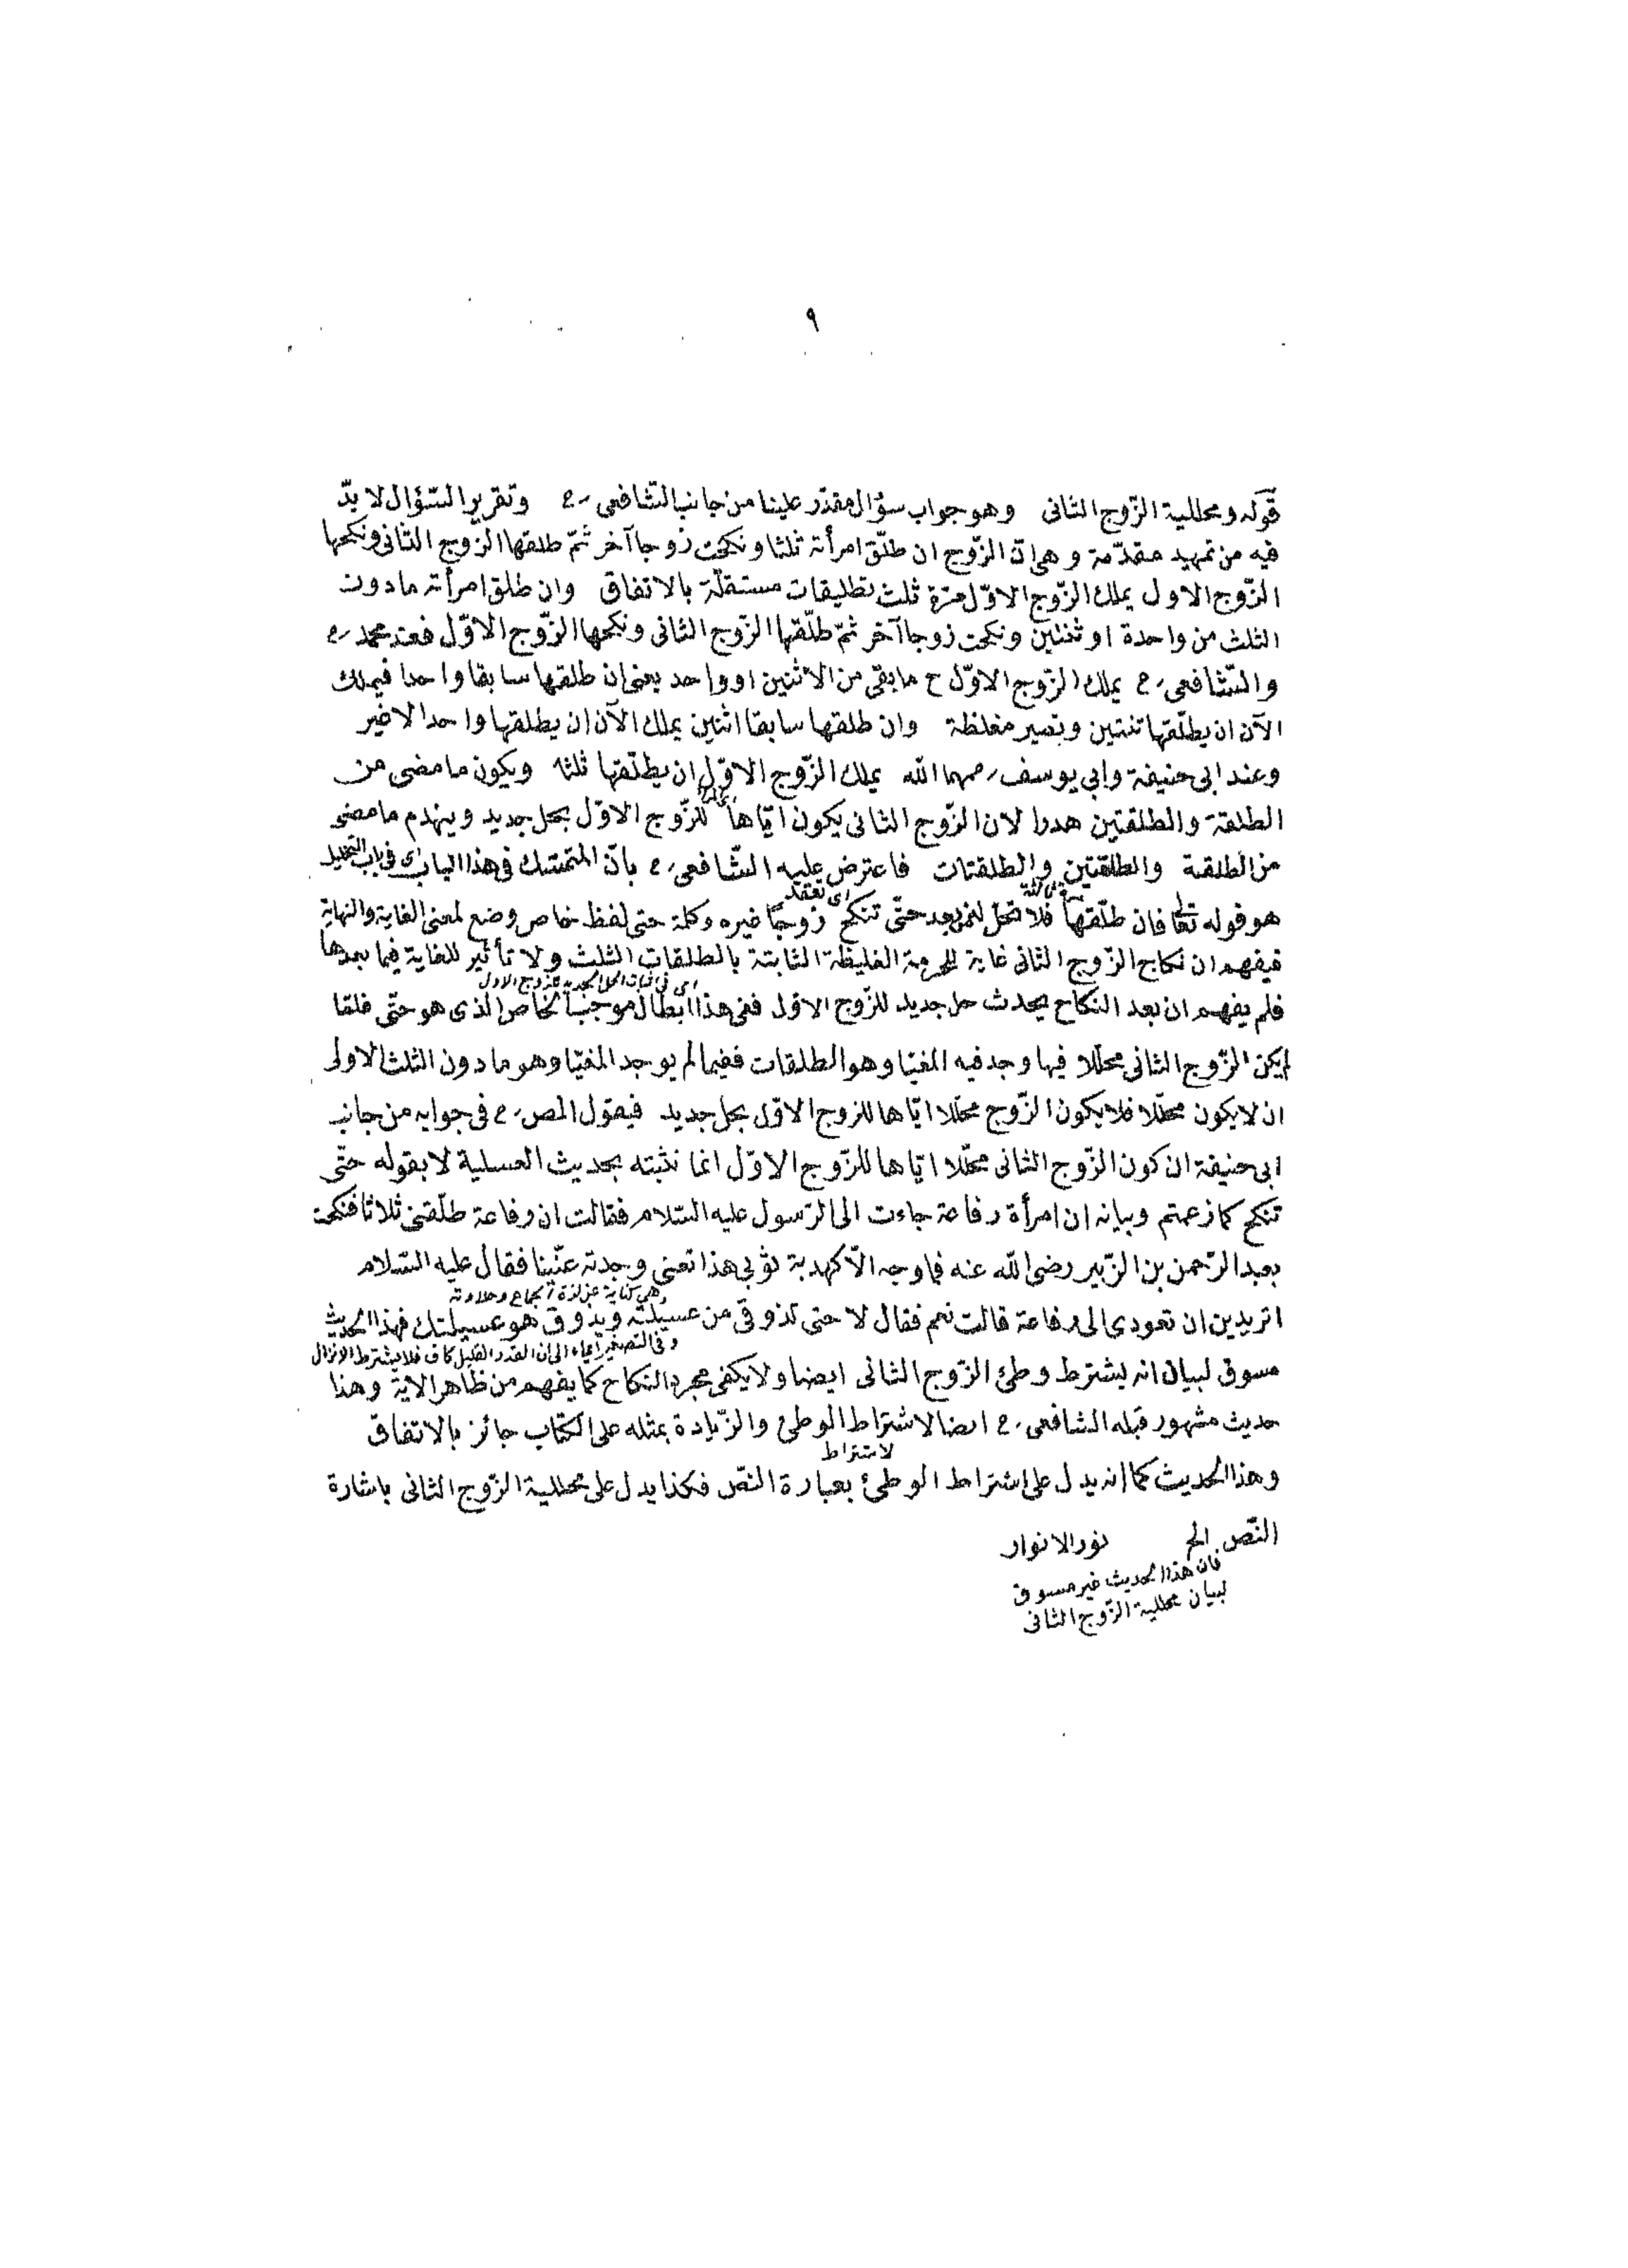 ٩
قوله ومحللية الزّوج الثانى وهو جواب سؤال مقدّر علينا من جانب الشّافعى رح وتقرير السّؤال لا بدّ
فيه من تمهيد مقدّمة وهى انّ الزّوج ان طلّق امرأته ثلثا ونكحت زوجا آخر ثمّ طلقها الزوج الثانى ونكحها
الزّوج الاول يملك الزّوج الاوّل مرّة ثلث تطليقات مستقلّة بالاتفاق وان طلق امرأته ما دون
الثلث من واحدة او ثنتين ونكحت زوجا آخر ثمّ طلّقها الزّوج الثانى ونكحها الزّوج الاوّل فعند محمد رح
والشّافعى رح يملك الزوج الاوّل ح ما بقى من الاثنين او واحد يعنى ان طلقها سابقا واحدا فيملك
الآن ان يطلّقها ثنتين وتصير مغلظة وان طلقها سابقا اثنين يملك الآن ان يطلقها واحدا لا غير
وعند ابى حنيفة وابي يوسف رحمهما الله يملك الزّوج الاوّل ان يطلّقها ثلثا ويكون ما مضى من
الطلقة والطلقتين هدرا لان الزّوج الثانى يكون ايّاها للزّوج الاوّل بحل جديد وينهدم ما مضى
من الطلقة والطلقتين والطلقتات فاعترض عليه الشّافعى رح بانّ المتمسّك فى هذا الباب اى فى باب التحليل
هو قوله تعا فان طلّقها فلا تحل له من بعد حتّى تنكح زوجًا غيره وكلمة حتى لفظ خاص وضع لمعنى الغاية والنهاية
اى تعقد
فيفهم ان نكاح الزّوج الثانى غاية للحرمة الغليظة الثابتة بالطلقات الثلث ولا تأثير للغاية فيما بعدها
اى فى اثبات الحل الجديد للزوج الاول
فلم يفهم ان بعد النكاح يحدث حل جديد للزّوج الاوّل ففى هذا ابطال موجب الخاص الذى هو حتّى فلقا
لم يكن الزّوج الثانى محلّلا فيها وجد فيه المغيّا وهو الطلقات ففيما لم يوجد المغيّا وهو ما دون الثلث الاولى
ان لا يكون محلّلا فلا يكون الزّوج محلّلا ايّاها للزوج الاوّل بحل جديد فيقول المص رح فى جوابه من جانب
ابى حنيفة ان كون الزّوج الثانى محلّلا ايّاها للزّوج الاوّل انما نثبته بحديث العسلية لا بقوله حتّى
تنكح كما زعمتم وبيانه ان امرأة رفاعة جاءت الى الرّسول عليه السّلام فقالت ان رفاعة طلّقنى ثلاثا فنكحت
بعبد الرّحمن بن الزّبير رضى الله عنه فما وجه الّا كهدبة ثوبى هذا تعنى وجدته عنّينا فقال عليه السّلام
وهى كناية عن لذة الجماع وحلاوته
اتريدين ان تعودى الى رفاعة قالت نعم فقال لا حتى تذوقى من عسيلته ويذوق هو عسيلتك فهذا الحديث
وفى التصغير ايماء الى ان القدر القليل كاف فلا يشترط الانزال
مسوق لبيان انه يشترط وطئ الزّوج الثانى ايضا ولا يكفى مجرد النكاح كما يفهم من ظاهر الآية وهذا
حديث مشهور قبله الشافعى رح ايضا لاشتراط الوطئ والزّيادة بمثله على الكتاب جائز بالاتفاق
لاشتراط
وهذا الحديث كما انه يدل على اشتراط الوطئ بعبارة النصّ فكذا يدل على محللية الزّوج الثانى باشارة
النّص الخ نور الانوار
فان هذا الحديث غير مسوق
لبيان محللية الزّوج الثانى